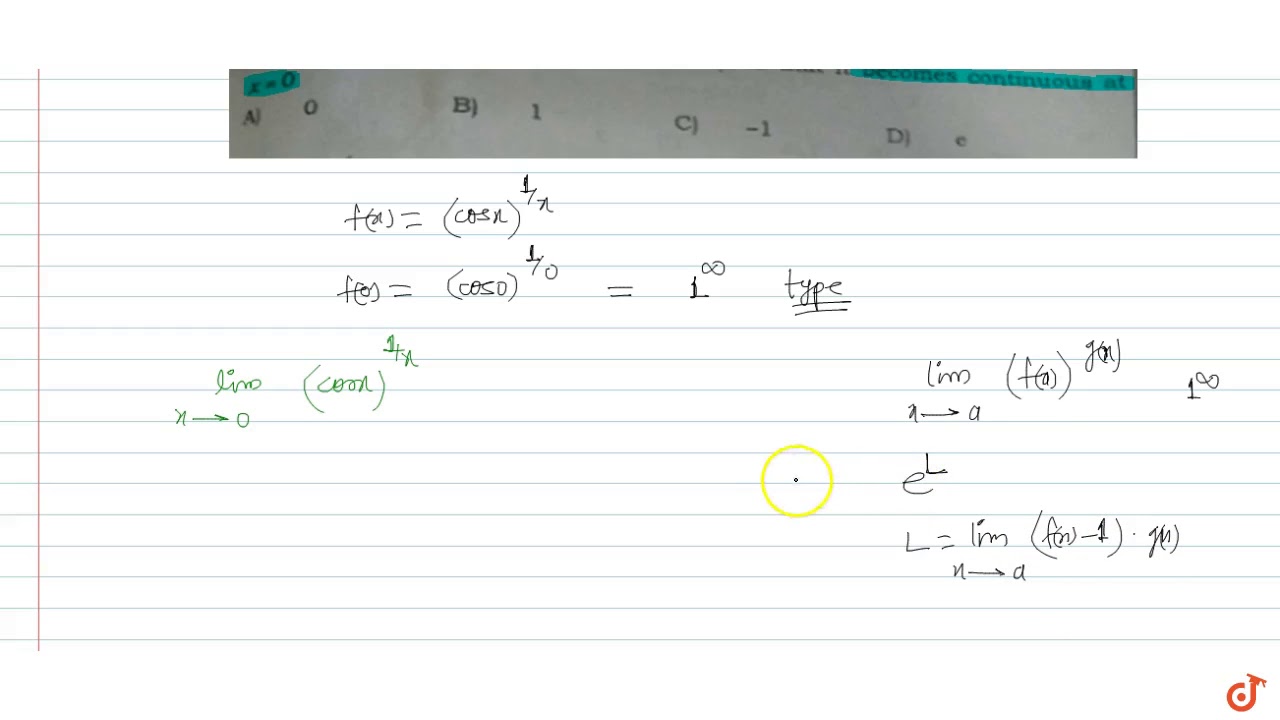 it becomes continuous at
x = 0
A) 0 B) 1 C) -1 D) e
f(x) = (cosx)^1/x
f(0) = (cos0)^1/0 = 1^∞ type
lim x→0 (cosx)^1/x
lim x→a (f(x))^g(x) 1^∞
e^L
L = lim x→a (f(x)-1) · g(x)
d